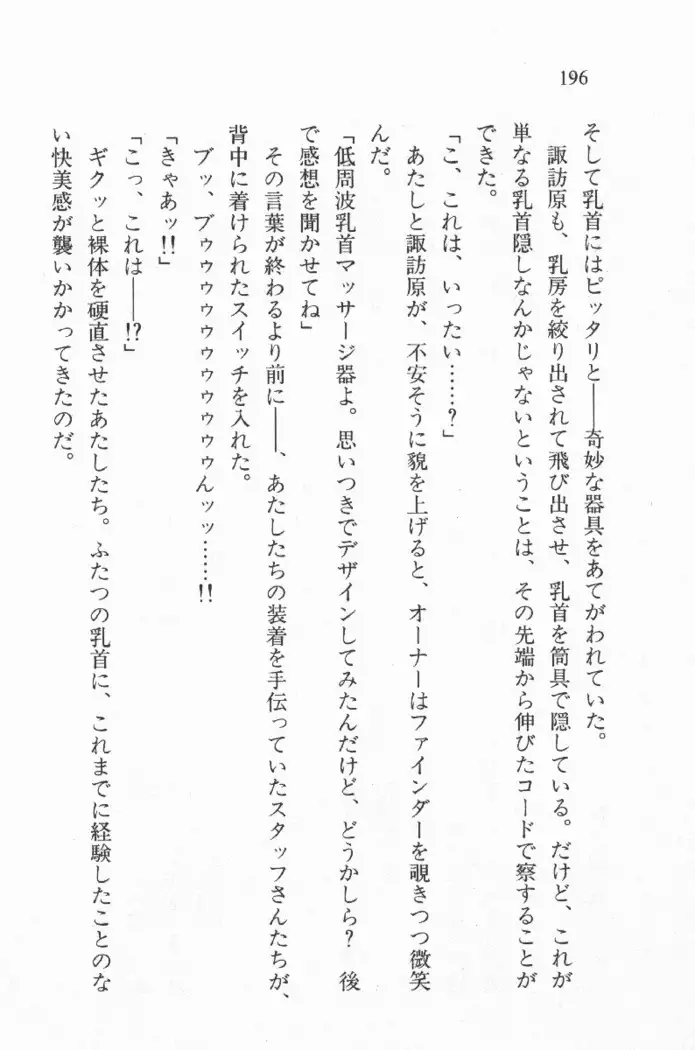 196
そして乳首にはピッタリと――奇妙な器具をあてがわれていた。
諏訪原も、乳房を絞り出されて飛び出させ、乳首を筒具で隠している。だけど、これが
単なる乳首隠しなんかじゃないということは、その先端から伸びたコードで察することが
できた。
「こ、これは、いったい……?」
あたしと諏訪原が、不安そうに貌を上げると、オーナーはファインダーを覗きつつ微笑
んだ。
「低周波乳首マッサージ器よ。思いつきでデザインしてみたんだけど、どうかしら? 後
で感想を聞かせてね」
その言葉が終わるより前に――、あたしたちの装着を手伝っていたスタッフさんたちが、
背中に着けられたスイッチを入れた。
ブッ、ブゥゥゥゥゥゥゥゥゥんッッ……!!
「きゃあッ!!」
「こっ、これは――!?」
ギクッと裸体を硬直させたあたしたち。ふたつの乳首に、これまでに経験したことのな
い快美感が襲いかかってきたのだ。